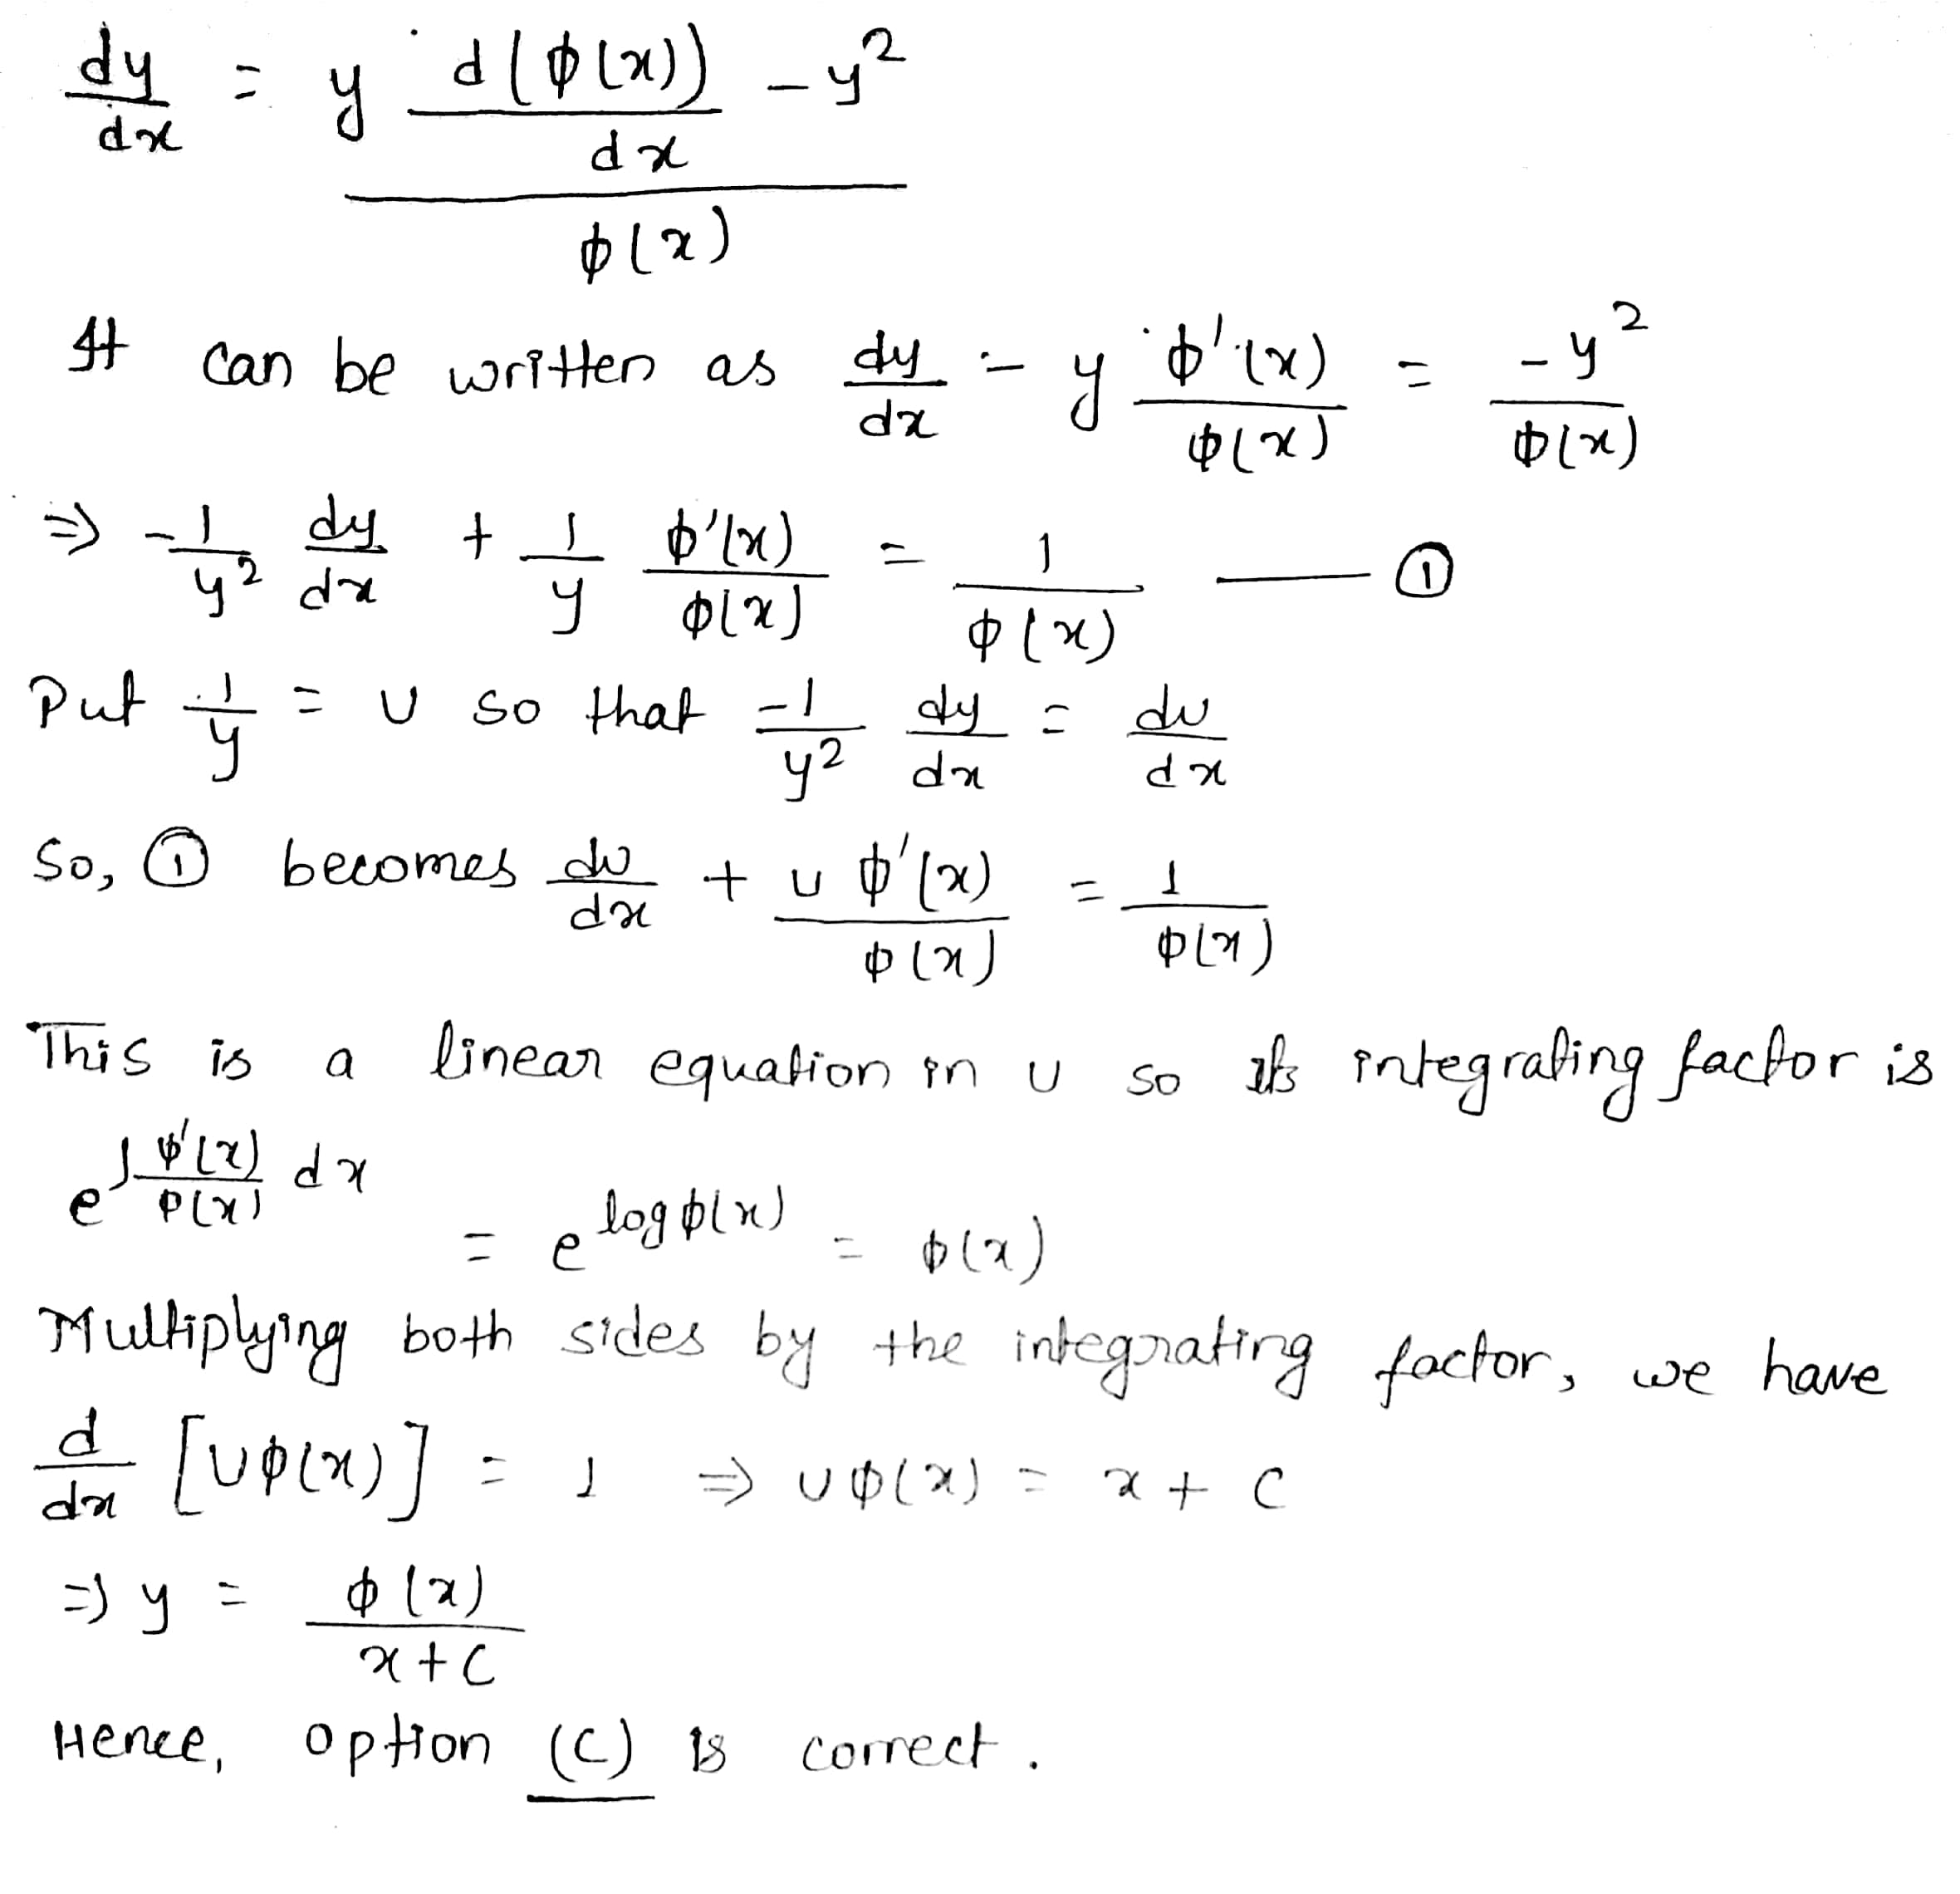 dy/dx = (y d(ϕ(x))/dx - y²)/ϕ(x)
It can be written as dy/dx - y ϕ'(x)/ϕ(x) = -y²/ϕ(x)
⇒ -1/y² dy/dx + 1/y ϕ'(x)/ϕ(x) = 1/ϕ(x) —— ①
Put 1/y = υ so that -1/y² dy/dx = dυ/dx
So, ① becomes dυ/dx + υϕ'(x)/ϕ(x) = 1/ϕ(x)
This is a linear equation in υ so its integrating factor is
e^∫ϕ'(x)/ϕ(x) dx = e^logϕ(x) = ϕ(x)
Multiplying both sides by the integrating factor, we have
d/dx [υϕ(x)] = 1 ⇒ υϕ(x) = x + c
⇒ y = ϕ(x)/(x+c)
Hence, option (c) is correct.